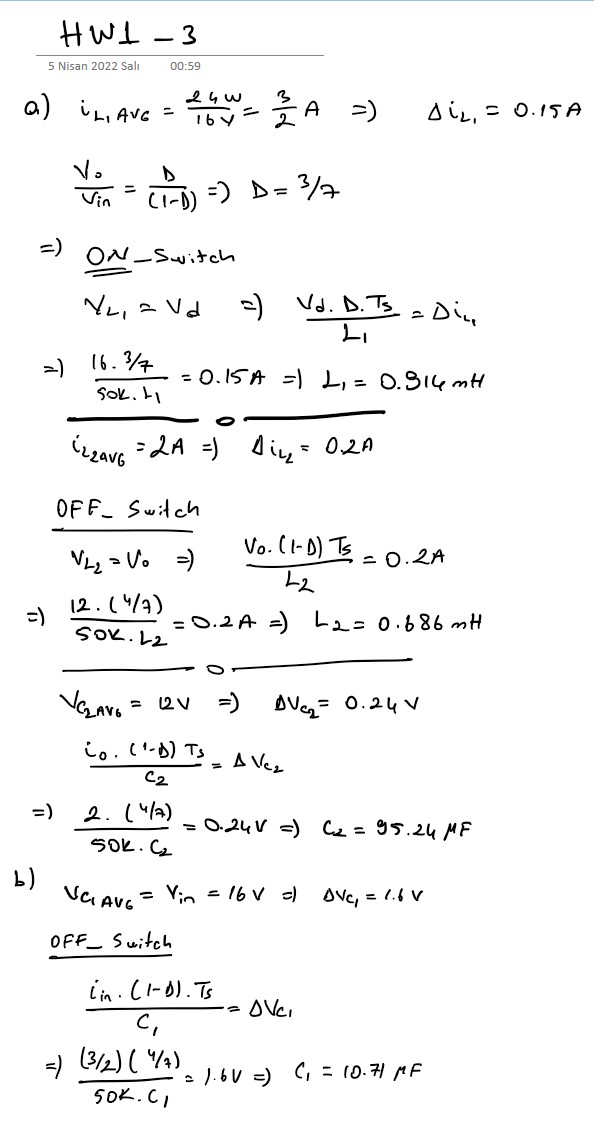 HW1 - 3
5 Nisan 2022 Salı 00:59
a) i_L1 AVG = 24W/16V = 3/2 A => Δi_L1 = 0.15A
Vo/Vin = D/(1-D) => D = 3/7
=> ON_Switch
V_L1 = Vd => Vd.D.Ts/L1 = Δi_L1
=> 16.3/7/50K.L1 = 0.15A => L1 = 0.914 mH
i_L2AVG = 2A => Δi_L2 = 0.2A
OFF_Switch
V_L2 = Vo => Vo.(1-D)Ts/L2 = 0.2A
=> 12.(4/7)/50K.L2 = 0.2A => L2 = 0.686 mH
V_C2AVG = 12V => ΔV_C2 = 0.24V
io.(1-D)Ts/C2 = ΔV_C2
=> 2.(4/7)/50K.C2 = 0.24V => C2 = 95.24 μF
b) V_C1AVG = Vin = 16V => ΔV_C1 = 1.6V
OFF_Switch
i_in.(1-D).Ts/C1 = ΔV_C1
=> (3/2)(4/7)/50K.C1 = 1.6V => C1 = 10.71 μF